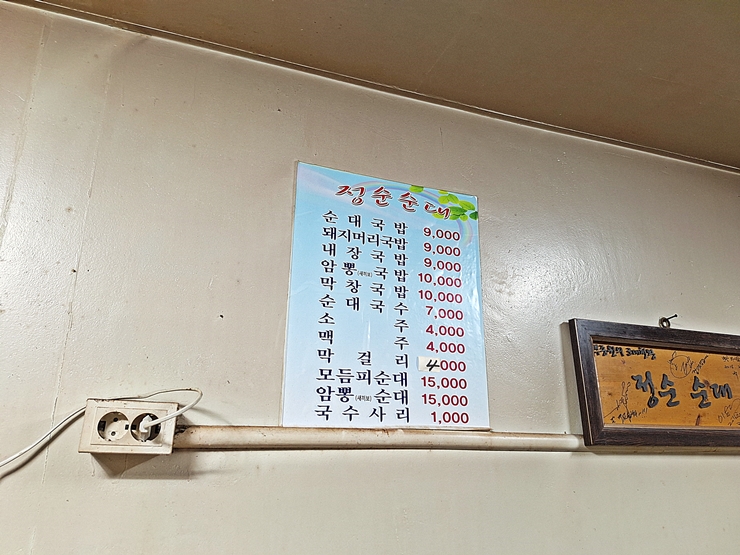 정순순대
순대국밥 9,000
돼지머리국밥 9,000
내장국밥 9,000
암뽕(새끼보)국밥 10,000
막창국밥 10,000
순대국수 7,000
소주 4,000
맥주 4,000
막걸리 4000
모듬피순대 15,000
암뽕(새끼보)순대 15,000
국수사리 1,000
정순 순대